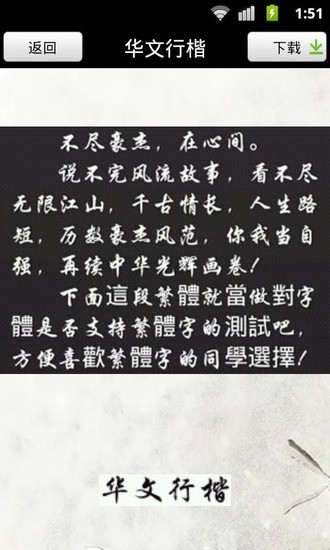 1:51
返回
华文行楷
下载
不尽豪杰，在心间。
说不完风流故事，看不尽
无限江山，千古情长，人生路
短，历数豪杰风范，你我当自
强，再续中华光辉画卷！
下面這段繁體就當做對字
體是否支持繁體字的測試吧，
方便喜歡繁體字的同學選擇！
华文行楷